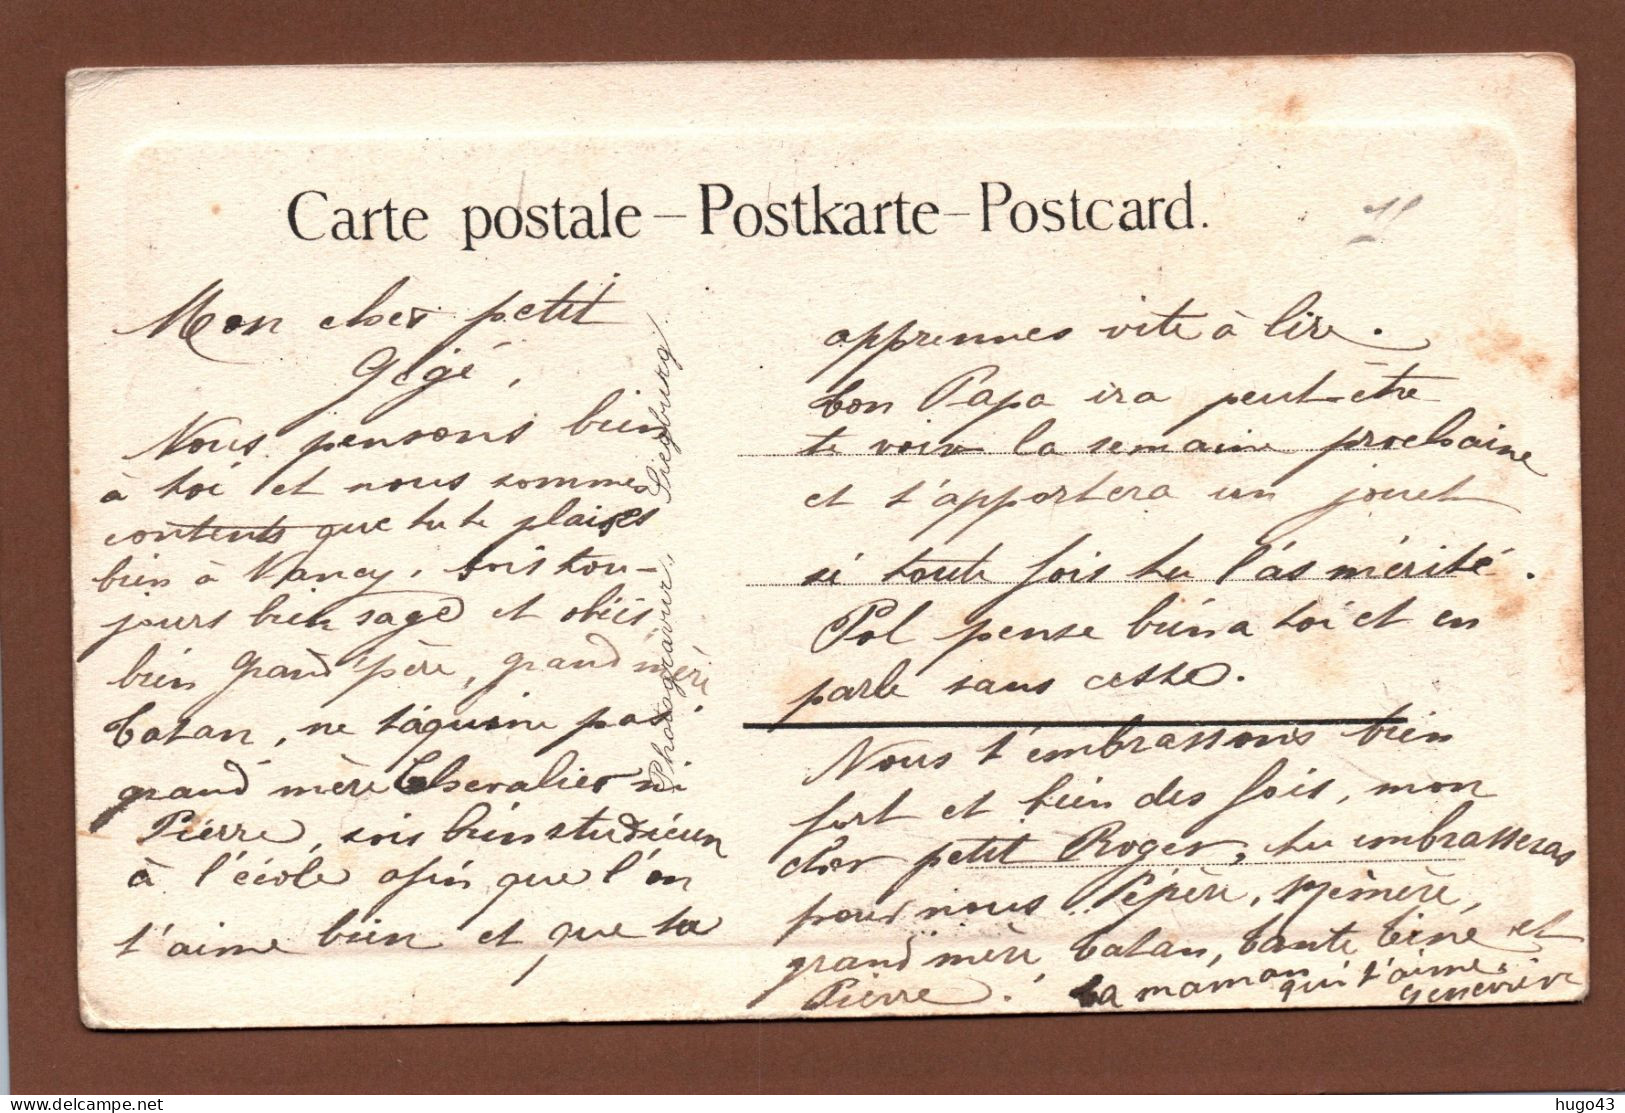 Carte postale – Postkarte – Postcard.
Mon cher petit
Gégé,
Nous pensons bien
à toi et nous sommes
contents que tu te plaises
bien à Nancy, sois tou-
jours bien sage et obéis
bien Grand'père, grand mère
Tatan, ne taquine pas
grand mère Chevalier ni
Pierre, sois bien studieux
à l'école afin que l'on
t'aime bien et que tu
apprennes vite à lire.
bon Papa ira peut-être
te voir la semaine prochaine
et t'apportera un jouet
si toute fois tu l'as mérité.
Pol pense bien a toi et en
parle sans cesse.
Nous t'embrassons bien
fort et bien des fois, mon
cher petit Roger, tu embrasseras
pour nous Pépère, Mémère,
grand mère Tatan, Tante Tine et
Pierre.
Ta maman qui t'aime.
Geneviève
Photogravur, Siegburg
hugo43